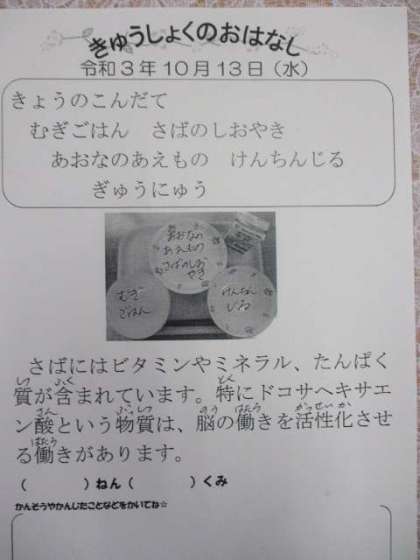 きゅうしょくのおはなし
令和3年10月13日（水）
きょうのこんだて
むぎごはん　さばのしおやき
あおなのあえもの　けんちんじる
ぎゅうにゅう
あおなの
あえもの
さばのしお
やき
むぎ
ごはん
けんちん
じる
さばにはビタミンやミネラル、たんぱく
質が含まれています。特にドコサヘキサエ
ン酸という物質は、脳の働きを活性化させ
る働きがあります。
（　　　）ねん（　　　）くみ
かんそうやかんじたことなどをかいてね☆